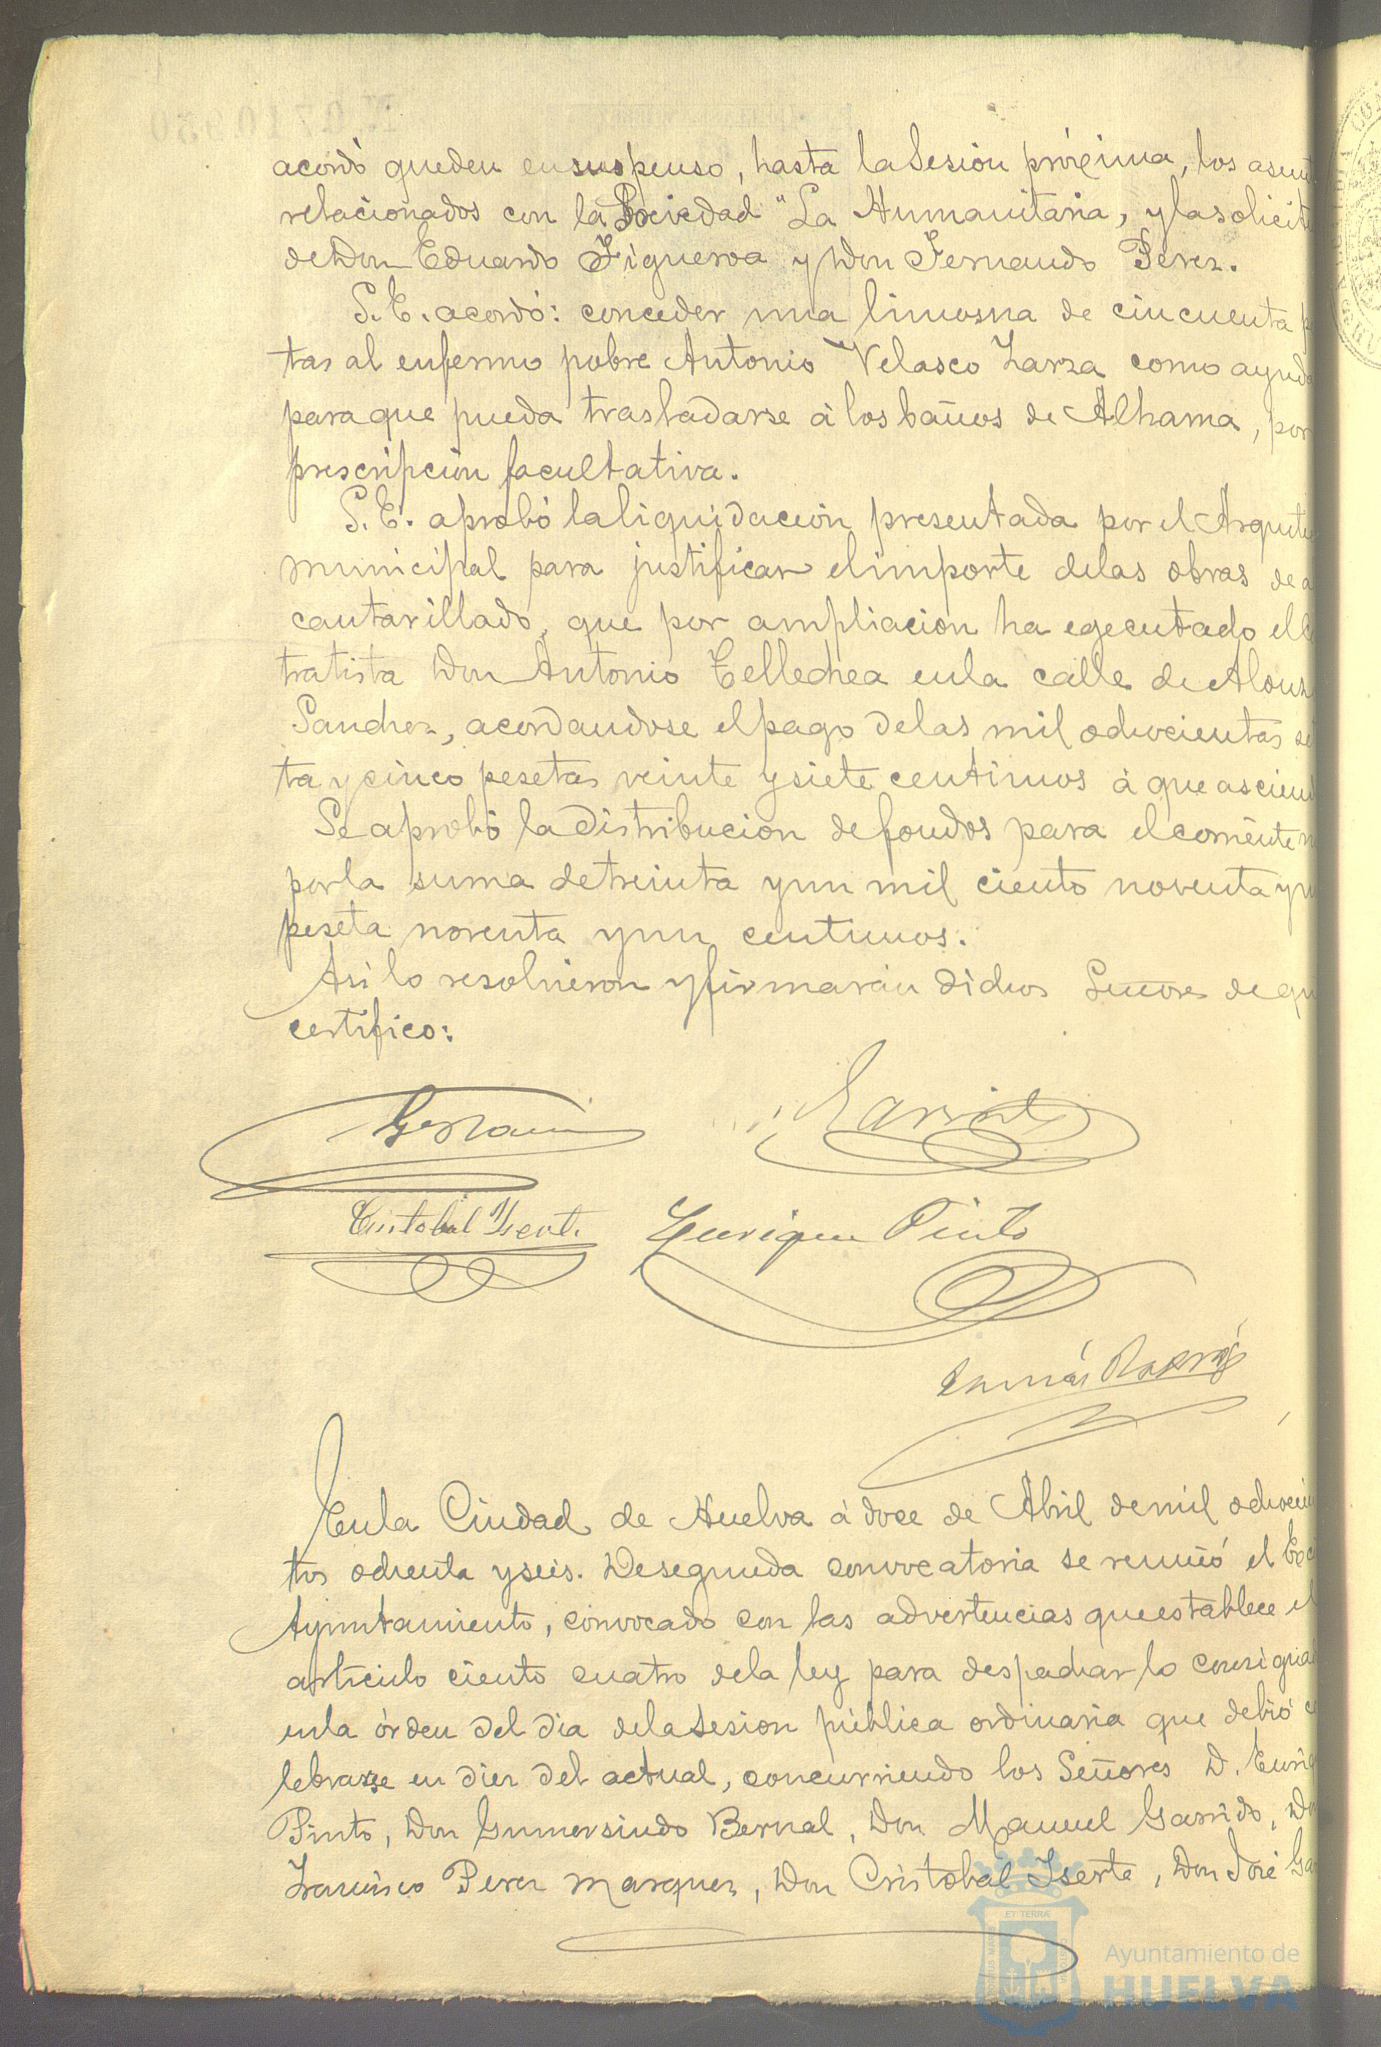 acordó queden en suspenso, hasta la Sesión próxima, los asunt
relacionados con la Sociedad "La Humanitaria, y la solicit
de Don Eduardo Figueroa y Don Fernando Perez.
S. E. acordó: conceder una limosna de cincuenta p
tas al enfermo pobre Antonio Velasco Zarza como ayuda
para que pueda trasladarse á los baños de Alhama, por
prescripción facultativa.
S. E. aprobó la liquidación presentada por el Arquite
municipal para justificar el importe de las obras de a
cantarillado, que por ampliación ha egecutado el C
tratista Don Antonio Tellechea en la calle de Alonz
Sanchez, acordandose el pago de las mil ochocientas se
ta y cinco pesetas veinte y siete centimos á que asciend
Se aprobó la distribucion de fondos para el corriente m
por la suma de treinta y un mil ciento noventa y u
peseta noventa y un centimos.
Asi lo resolvieron y firmarán dichos Señores de qu
certifico:
Garrido
Cristobal Yserte Enrique Pinto
Tomás
En la Ciudad de Huelva á doce de Abril de mil ochocien
tos ochenta y seis. De segunda convocatoria se reunió el Exc
Ayuntamiento, convocado con las advertencias que establece el
artículo ciento cuatro de la ley para despachar lo consigna
en la órden del dia de la sesion pública ordinaria que debió ce
lebrarse en diez del actual, concurriendo los Señores D. Enriq
Pinto, Don Gumersindo Bernal, Don Manuel Garrido, Do
Francisco Perez Marquez, Don Cristobal Yserte, Don José Ga
Ayuntamiento de
HUELVA